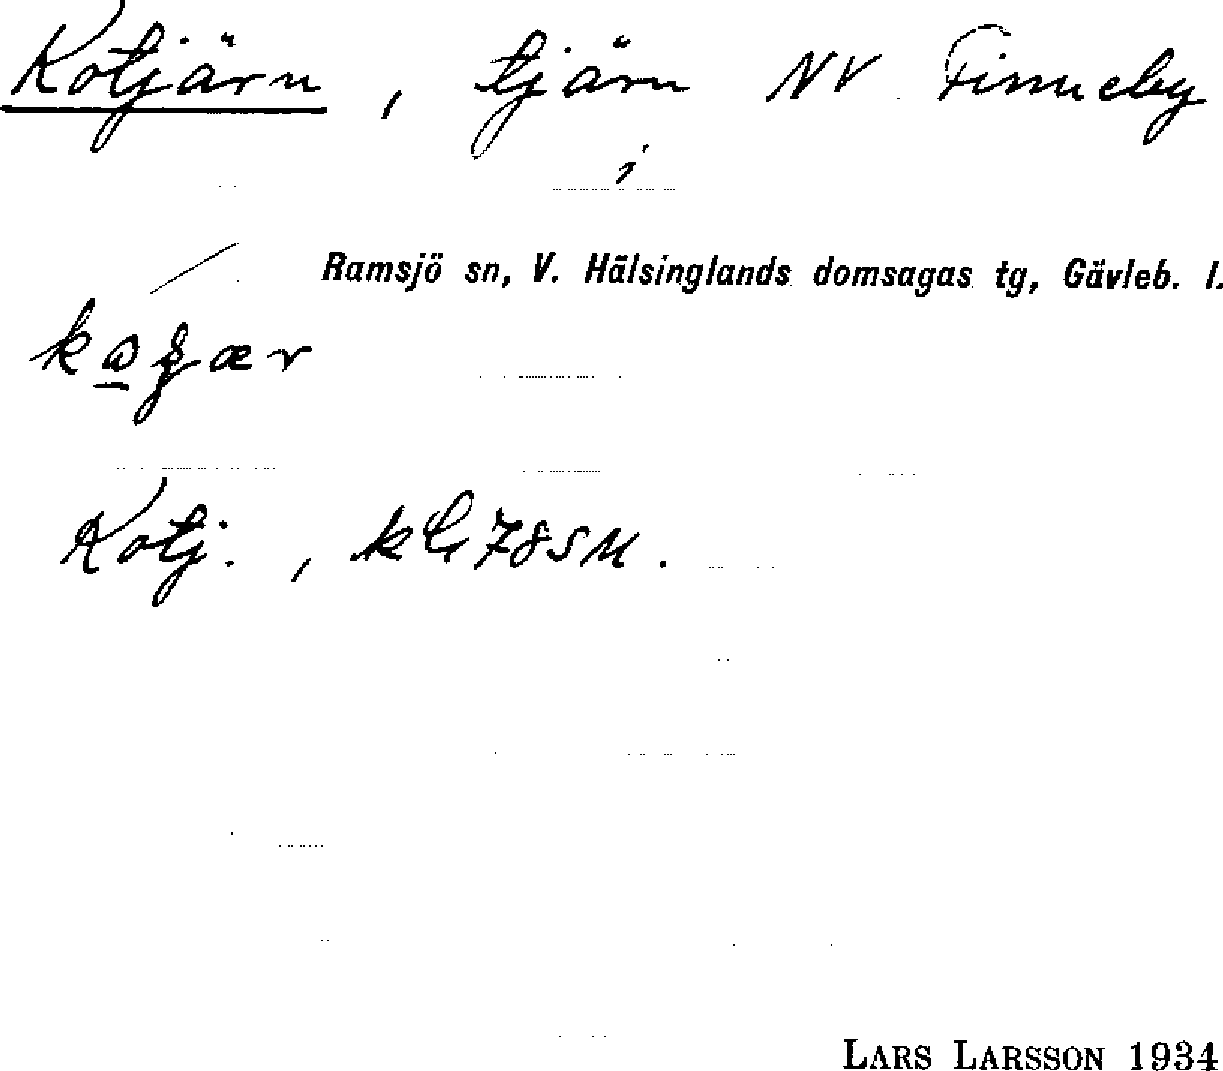 Kotjärn, tjärn NV Finneby
i
Ramsjö sn, V. Hälsinglands domsagas tg, Gävleb. l.
Kotj.,
LARS LARSSON 1934